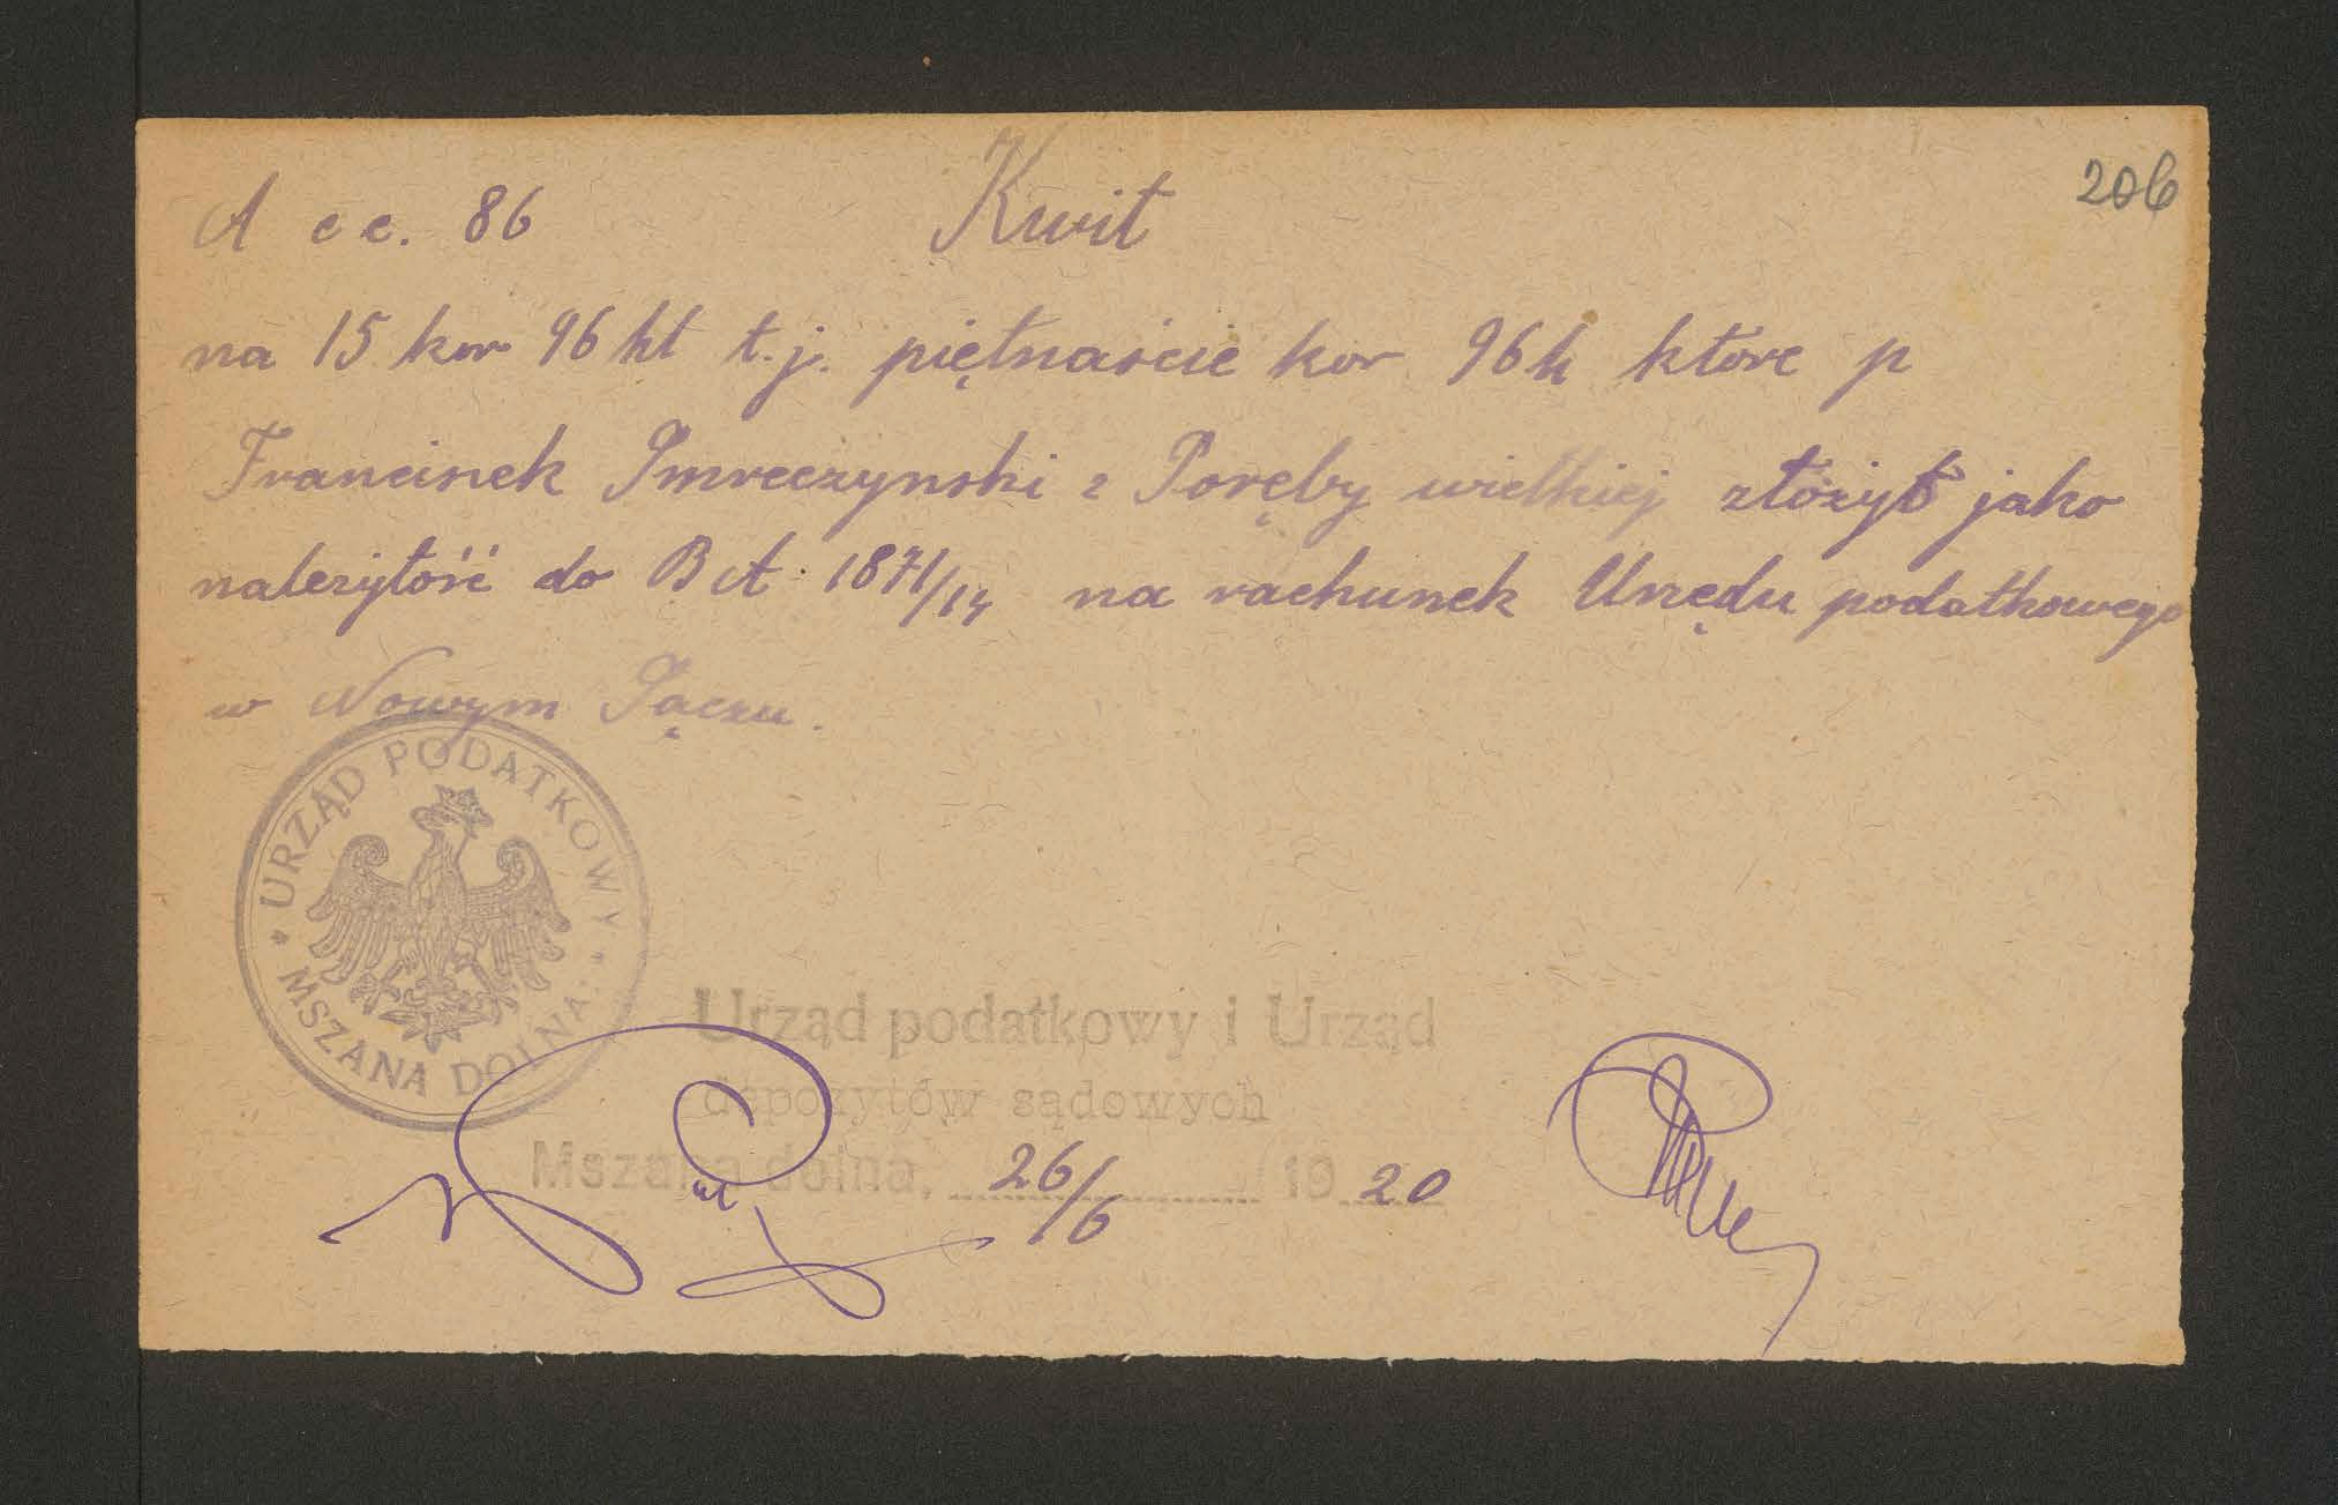 206
A cc. 86 Kwit
na 15 kor 96 hl t.j. piętnaście kor 96 h które p
Franciszek Smreczynski z Poręby wielkiej złożył jako
należytość do B A 1871/14 na rachunek Urzędu podatkowego
w Nowym Sączu.
URZĄD PODATKOWY
MSZANA DOLNA
Urząd podatkowy i Urząd
depozytów sądowych
Mszana dolna, 26/6 1920